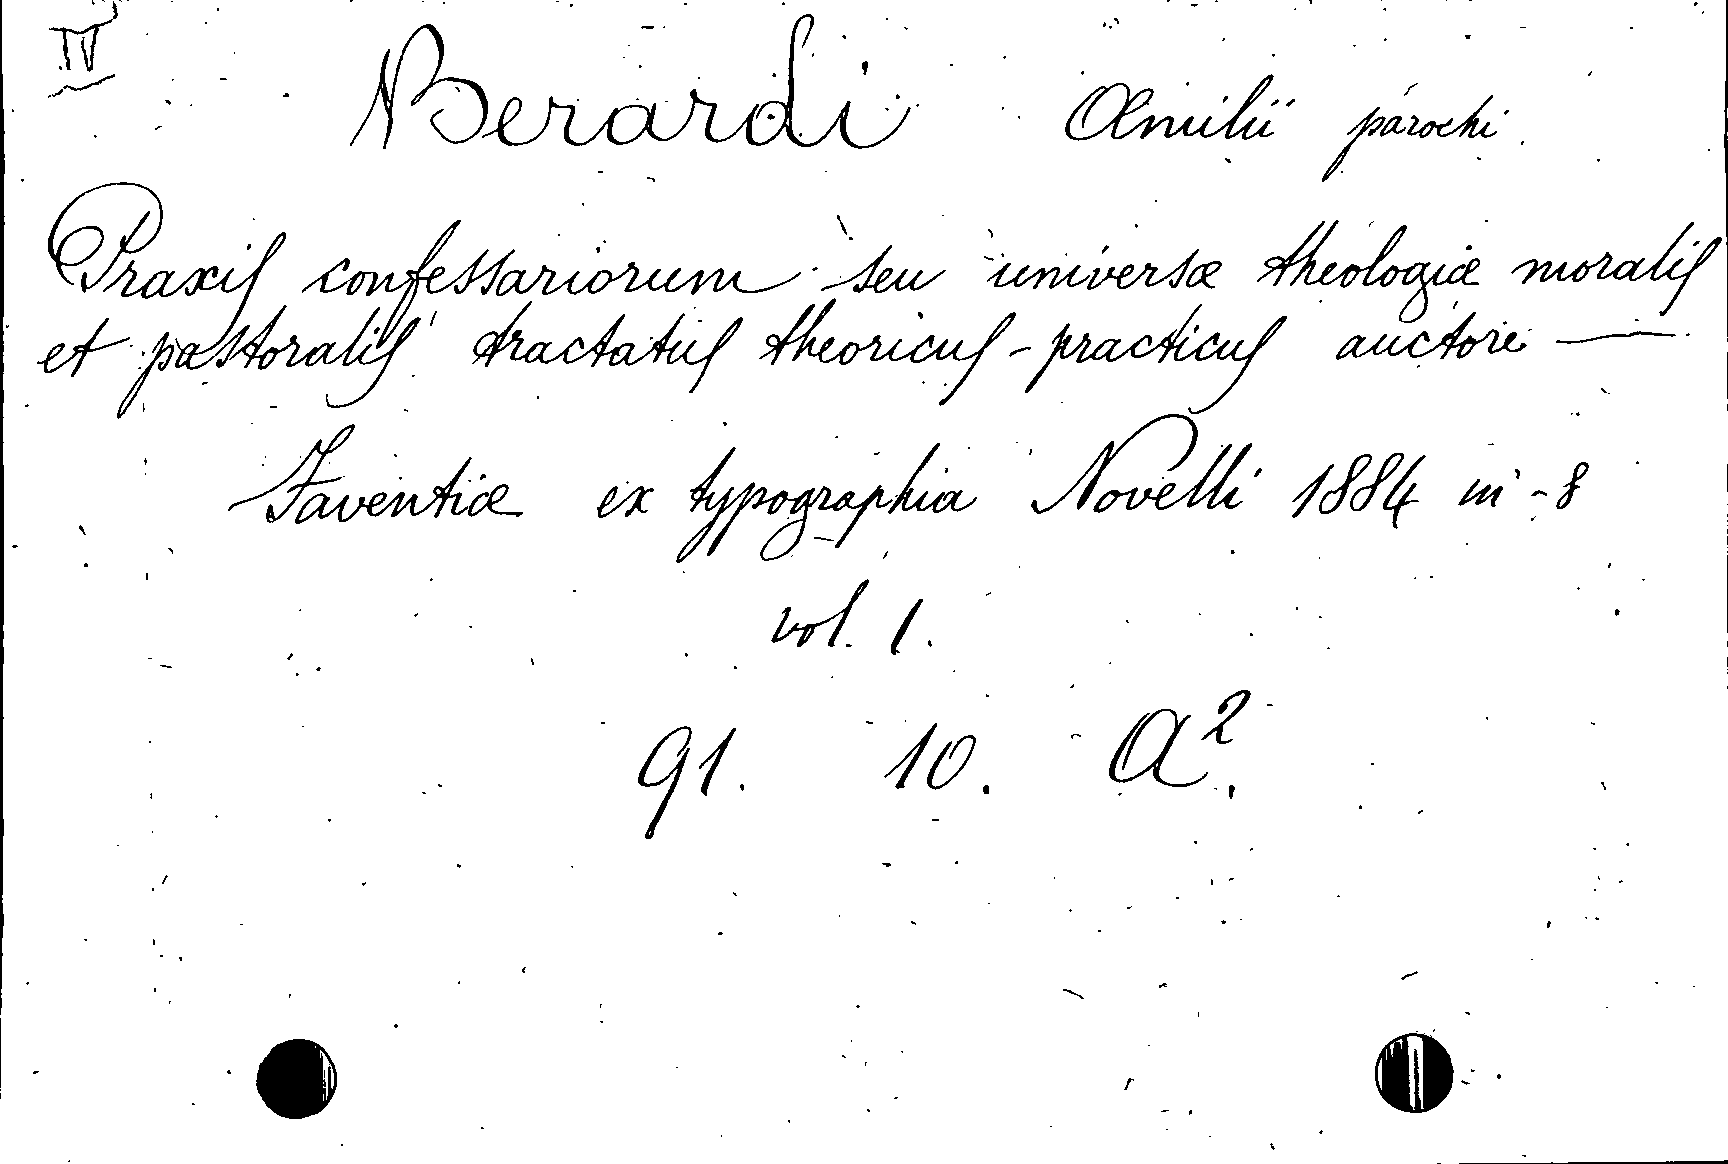 IV
Berardi Æmilii parochi
Praxis confessariorum seu universæ theologiæ moralis
et pastoralis tractatus theoricus-practicus auctore —
Faventiæ ex typographia Novelli 1884 in-8
vol. 1.
91. 10. A².